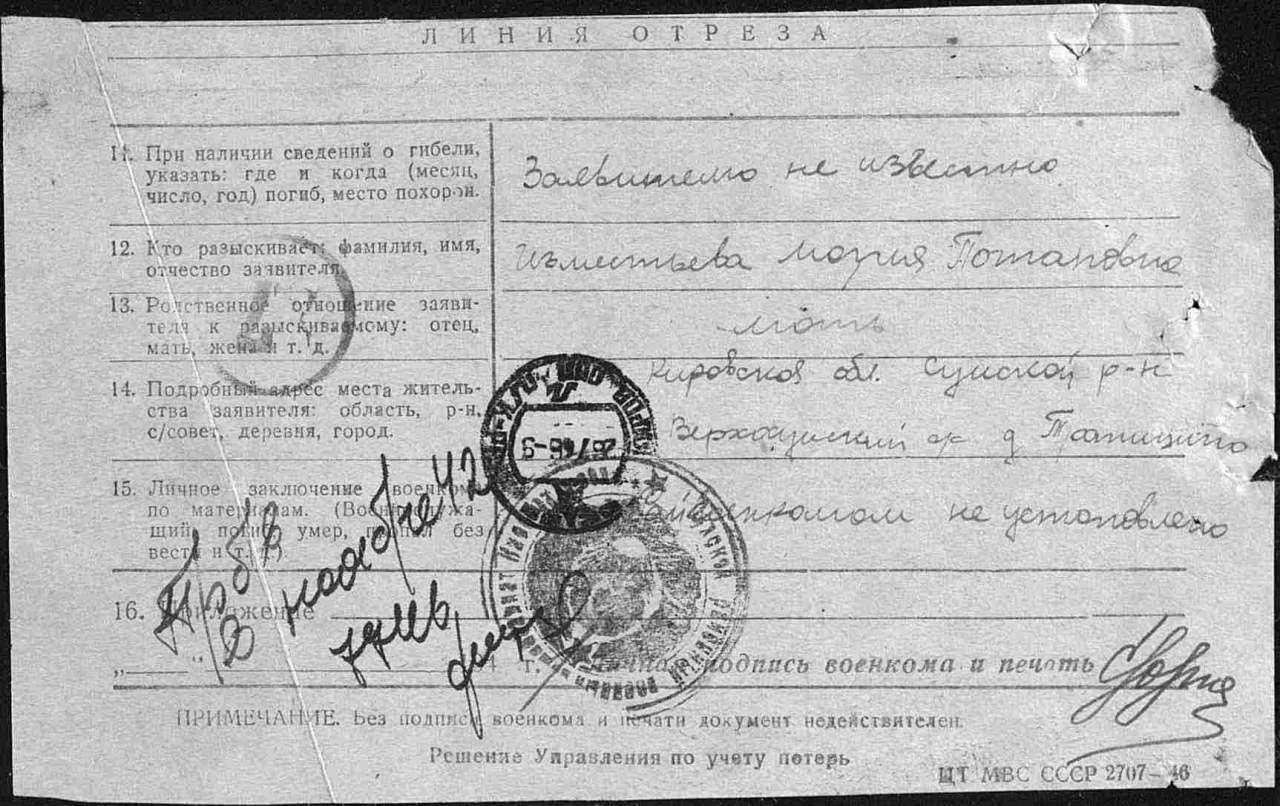 ЛИНИЯ ОТРЕЗА
11. При наличии сведений о гибели,
указать: где и когда (месяц,
число, год) погиб, место похорон.
Заявителю не известно
12. Кто разыскивает: фамилия, имя,
отчество заявителя
Изместьева Мария Потаповна
13. Родственное отношение заяви-
теля к разыскиваемому: отец,
мать, жена и т. д.
мать
14. Подробный адрес места житель-
ства заявителя: область, р-н,
с/совет, деревня, город.
Кировская обл. Сунской р-н
Верхосунский д
15. Личное заключение военкома
по материалам. (Военнослужа-
щий погиб, умер, пропал без
вести и т. д.)
Райвоенкоматом не установлено
26 7 46-9
Пр б/в
в ноябре 42
16. Приложение
„ “ 4 г. Личная подпись военкома и печать
ПРИМЕЧАНИЕ. Без подписи военкома и печати документ недействителен.
Решение Управления по учету потерь
ЦТ МВС СССР 2707-46